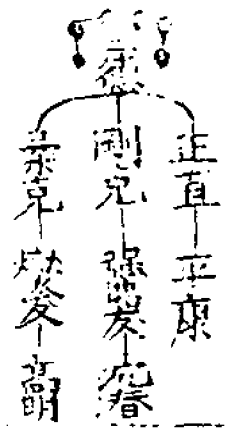 正直平康
剛克強弗友沉潛
柔克燮友高明